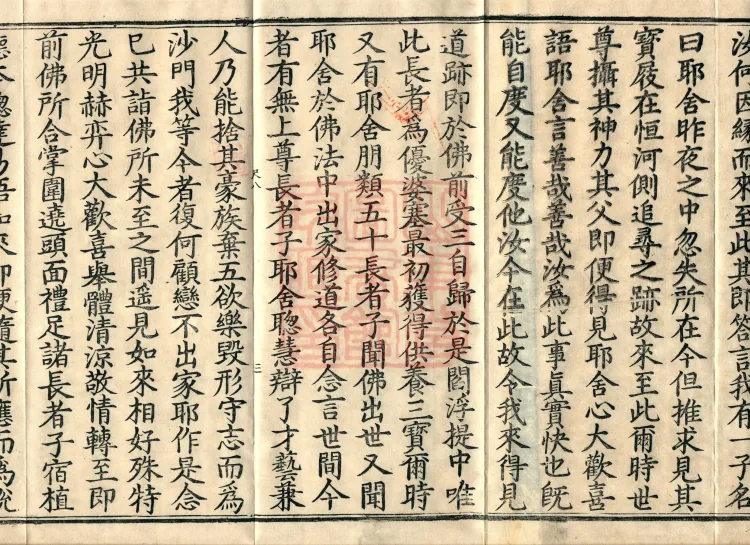 汝何因緣而來至此其即答言我有一子名
曰耶舍昨夜之中忽失所在今但推求見其
寶屐在恒河側追尋之跡故來至此爾時世
尊攝其神力其父即便得見耶舍心大歡喜
語耶舍言善哉善哉汝爲此事真實快也旣
能自度又能度他汝今在此故令我來得見
道跡即於佛前受三自歸於是閻浮提中唯
此長者爲優婆塞最初獲得供養三寶爾時
又有耶舍朋類五十長者子聞佛出世又聞
耶舍於佛法中出家修道各自念言世間今
者有無上尊長者子耶舍聦慧辯了才藝兼
人乃能捨其豪族棄五欲樂毀形守志而爲
三
沙門我等今者復何顧戀不出家耶作是念
已共詣佛所未至之間遥見如來相好殊特
光明赫弈心大歡喜舉體清涼敬情轉至即
前佛所合掌圍遶頭面禮足諸長者子宿植
德本聦達易悟如來即便隨其所應而爲說